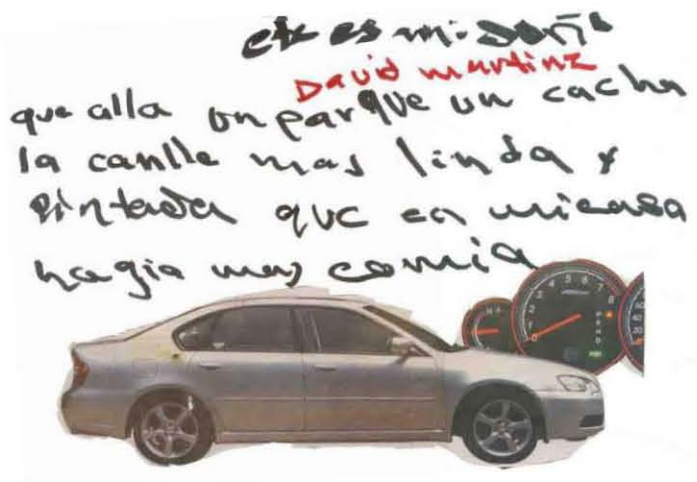 este es mi sueño
David martinz
que alla un parque un cacha
la canlle mas linda y
pintada que en mi casa
hagia mas comia